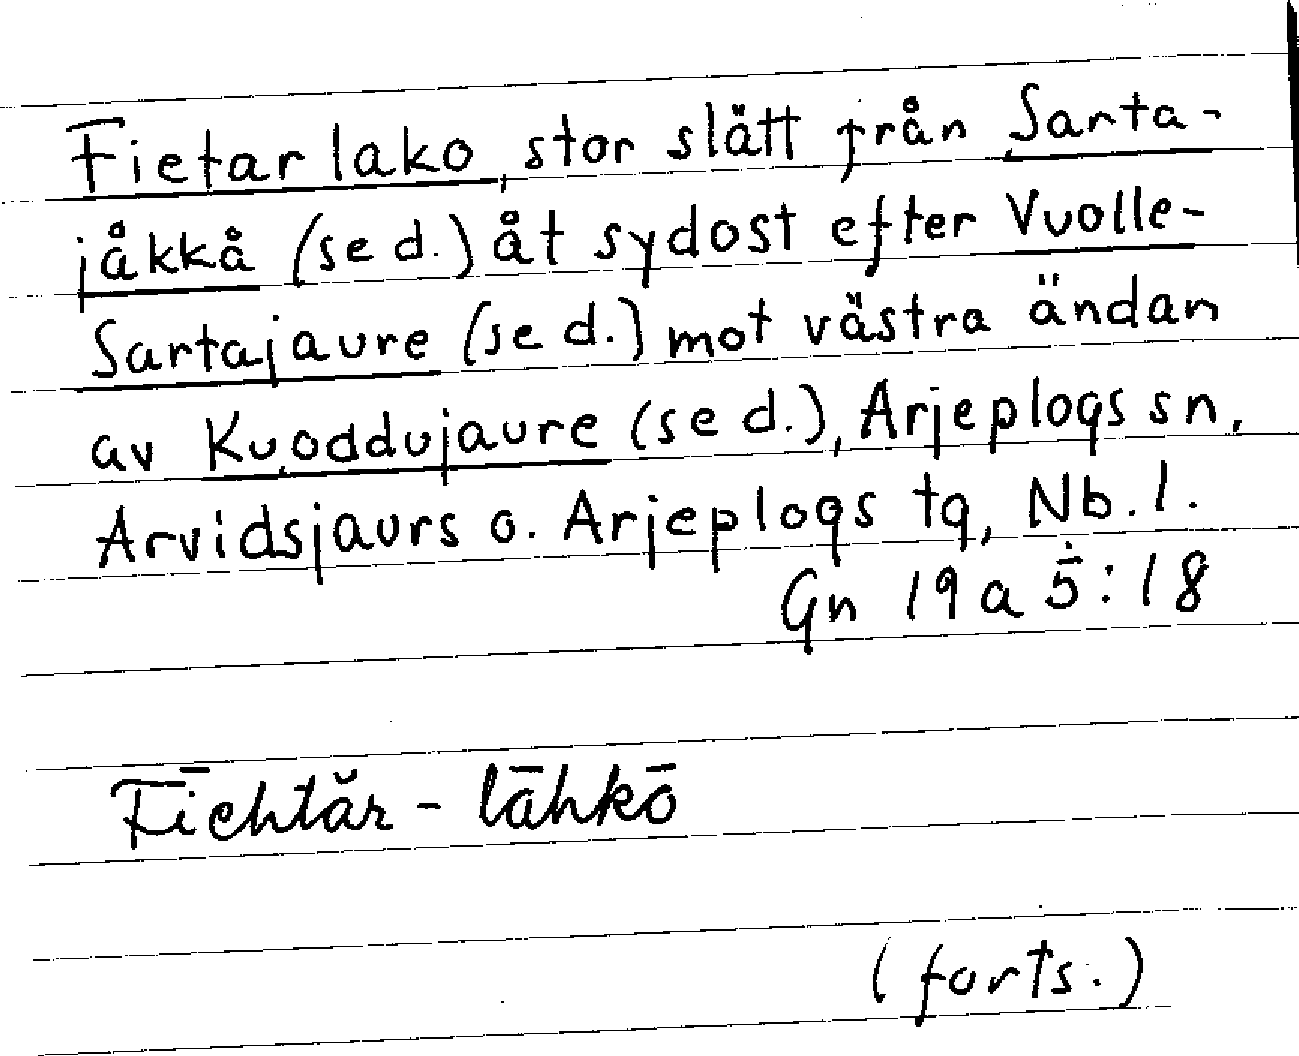 Fietar lako, stor slätt från Sarta-
jåkkå (se d.) åt sydost efter Vuolle-
Sartajaure (se d.) mot västra ändan
av Kuoddujaure (se d.), Arjeplogs sn,
Arvidsjaurs o. Arjeplogs tg, Nb. l.
Gn 19 a 5:18
Fīehtăr - lāhkō
(forts.)